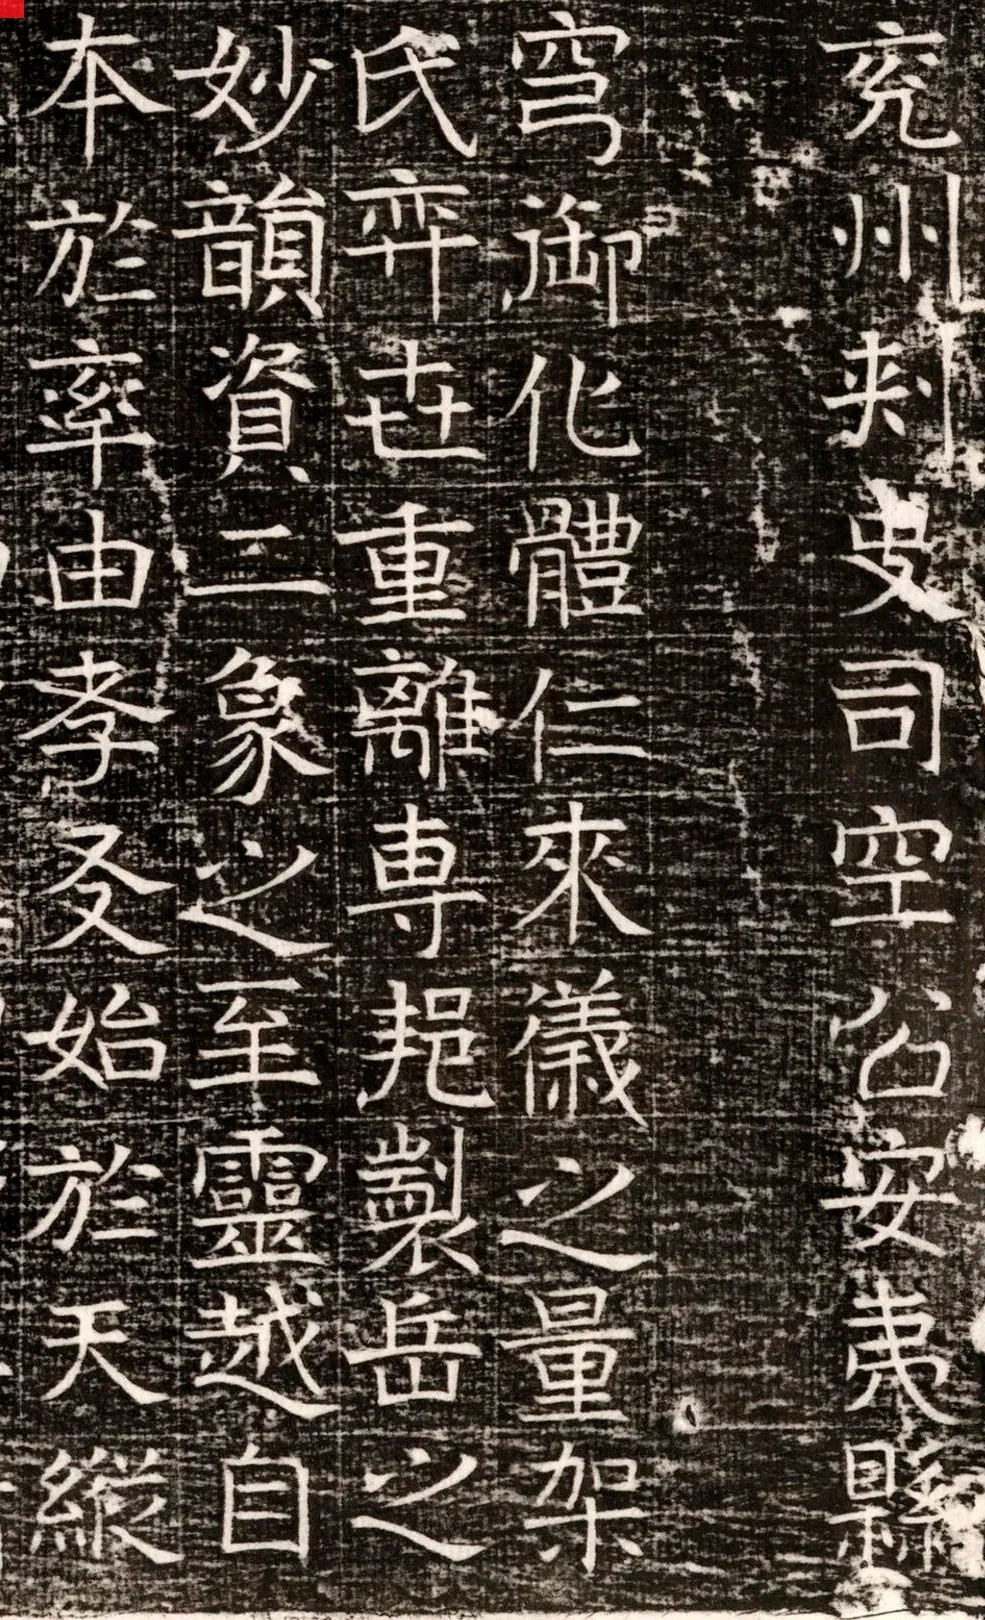 兖州刾史司空公安夷縣
穹御化體仁來儀之量架
氏弈世重離専邦製岳之
妙韻資二象之至靈越自
本於率由孝友始於天縱